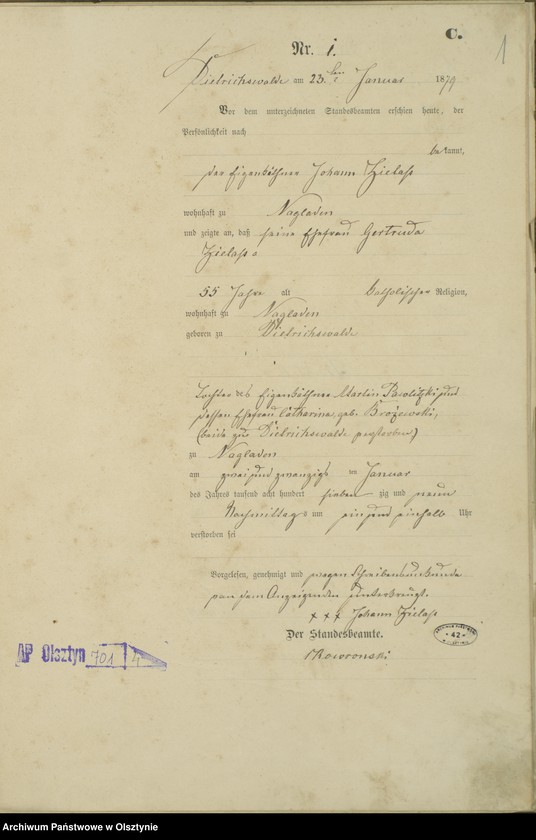 C.
1
Nr. 1.
Dietrichswalde am 23ten Januar 1879
Vor dem unterzeichneten Standesbeamten erschien heute, der
Persönlichkeit nach
bekannt,
der Eigenkäthner Johann Zielasz
wohnhaft zu Nagladen
und zeigte an, daß seine Ehefrau Gertruda
Zielasz
55 Jahre alt Catholischer Religion,
wohnhaft zu Nagladen
geboren zu Dietrichswalde
Tochter des Eigenkäthner Martin Pawlitzki und
dessen Ehefrau Catharina, geb.
(beide zu Dietrichswalde verstorben)
zu Nagladen
am zwei und zwanzigs ten Januar
des Jahres tausend acht hundert sieben zig und neun
Nachmittags um ein und einhalb Uhr
verstorben sei
Vorgelesen, genehmigt und wegen Schreibensunkunde
von dem Anzeigenden unterkreuzt.
+++ Johann Zielasz
Der Standesbeamte.
42
AP Olsztyn 701 4
Archiwum Państwowe w Olsztynie